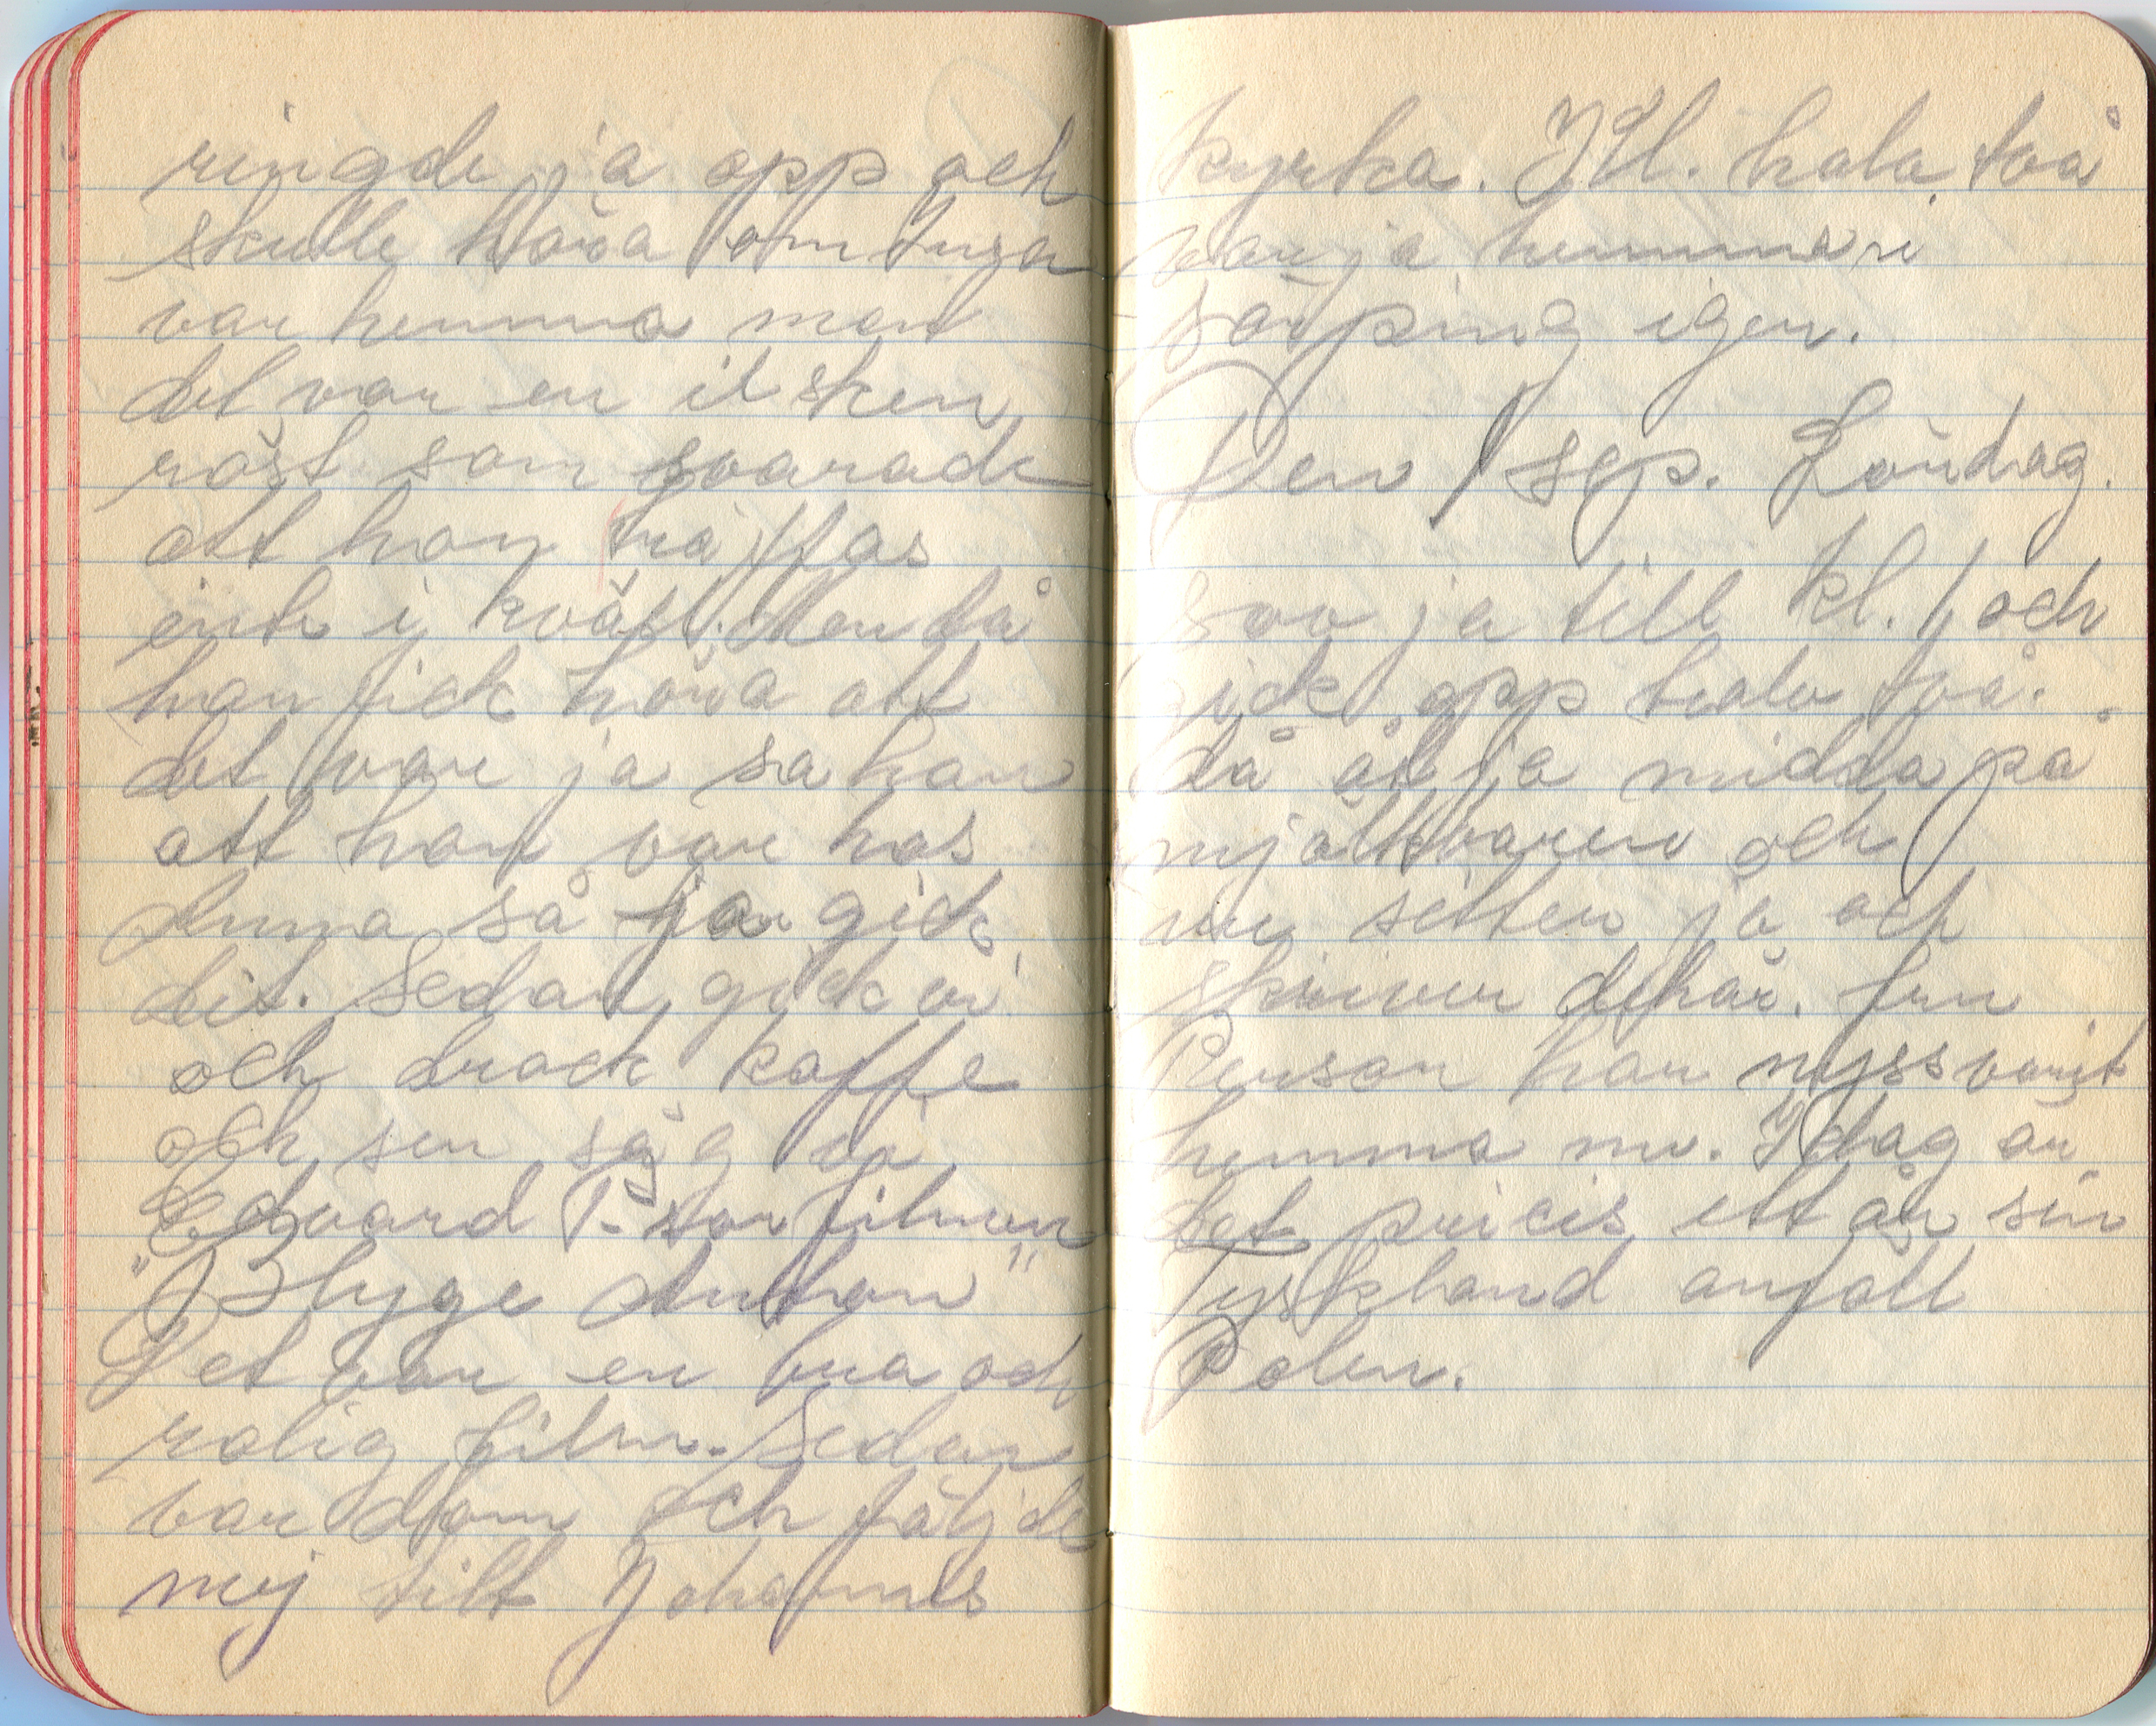 ringde ja opp och
skulle höra om Inga
var hemma men
det var en ilsken
röst som svarade
att hon träffas
inte i kväll. Men då
han fick höra att
det var ja sa han
att hon var hos
Anna så ja gick
dit. Sedan gick vi
och drack kaffe
och sen såg vi
Edvard P-son filmen
"Blyge Anton"
Det var en bra och
rolig film. Sedan
var dom och följde
mej till Johannes
kyrka. Kl. halv två
var ja hemma i
igen.
Den 1 sep. Söndag.
sov ja till kl. 1 och
gick opp halv två.
då åt ja midda på
mjölkbaren och
nu sitter ja och
skriver dehär. fru
Person har nyss varit
hemma nu. Idag är
det precis ett år sen
Tyskland anföll
Polen.